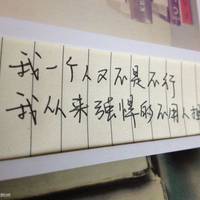 我一个人又不是不行
我从来强悍的不用人担